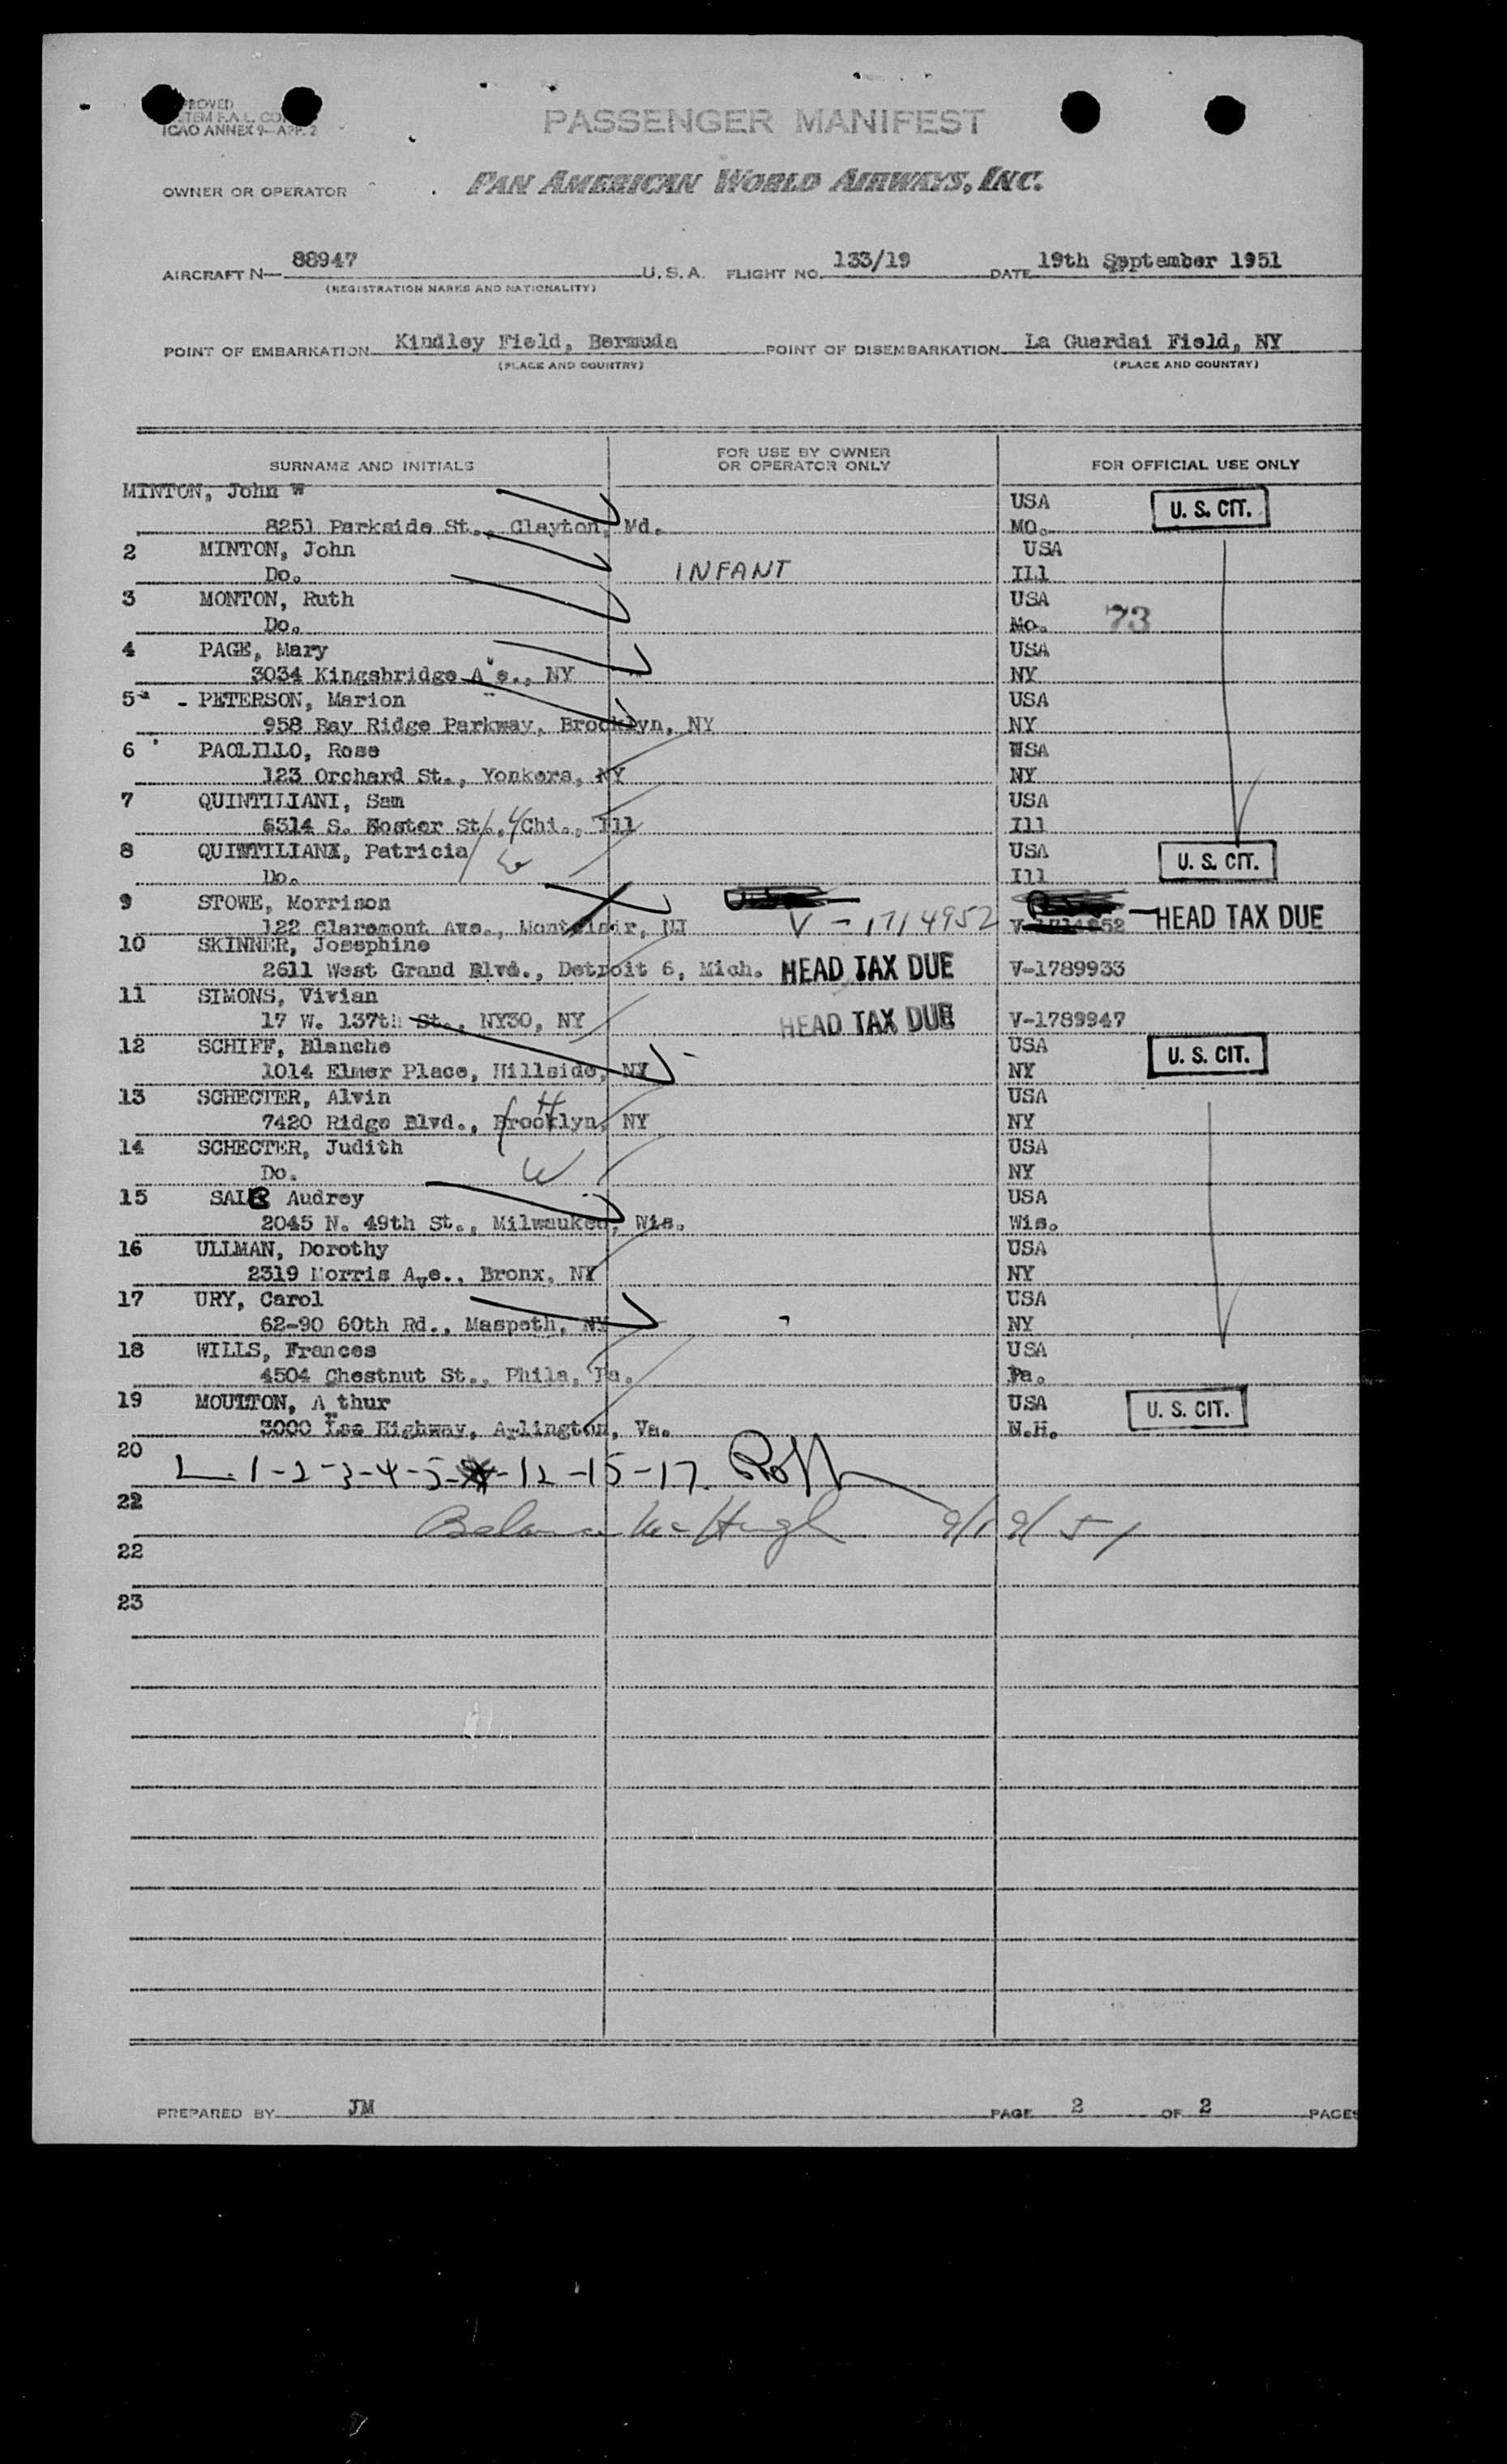 ICAO ANNEX 9—APP. 2
PASSENGER MANIFEST
OWNER OR OPERATOR
PAN AMERICAN WORLD AIRWAYS, INC.
AIRCRAFT N— 88947 U. S. A. FLIGHT NO. 133/19 DATE 19th September 1951
(REGISTRATION MARKS AND NATIONALITY)
POINT OF EMBARKATION Kindley Field, Bermuda POINT OF DISEMBARKATION La Guardai Field, NY
(PLACE AND COUNTRY) (PLACE AND COUNTRY)
SURNAME AND INITIALS FOR USE BY OWNER OR OPERATOR ONLY FOR OFFICIAL USE ONLY
MINTON, John W USA U. S. CIT.
8251 Parkside St., Clayton, Md. MO.
2 MINTON, John USA
Do. INFANT Ill
3 MONTON, Ruth USA 73
Do. Mo.
4 PAGE, Mary USA
3034 Kingsbridge Ave., NY NY
5 - PETERSON, Marion USA
958 Bay Ridge Parkway, Brooklyn, NY NY
6 PAOLILLO, Rose USA
123 Orchard St., Yonkers, NY NY
7 QUINTILIANI, Sam USA
6314 S. Hoster St., Chi., Ill Ill
8 QUINTILIANI, Patricia USA U. S. CIT.
Do. W Ill
9 STOWE, Morrison
122 Claremont Ave., Montclair, NJ V-1714952 HEAD TAX DUE
10 SKINNER, Josephine
2611 West Grand Blvd., Detroit 6, Mich. HEAD TAX DUE V-1789933
11 SIMONS, Vivian
17 W. 137th St., NY30, NY HEAD TAX DUE V-1789947
12 SCHIFF, Blanche USA U. S. CIT.
1014 Elmer Place, Hillside, NY NY
13 SCHECTER, Alvin USA
7420 Ridge Blvd., Brooklyn, NY H NY
14 SCHECTER, Judith USA
Do. W NY
15 Audrey USA
2045 N. 49th St., Milwaukee, Wis. Wis.
16 ULLMAN, Dorothy USA
2319 Morris Ave., Bronx, NY NY
17 URY, Carol USA
62-90 60th Rd., Maspeth, NY NY
18 WILLS, Frances USA
4504 Chestnut St., Phila, Pa. Pa.
19 MOULTON, Arthur USA U. S. CIT.
3000 Lee Highway, Arlington, Va. N.H.
20
L. 1-2-3-4-5-12-15-17
22
Balance McHugh 9/19/51
22
23
PREPARED BY JM PAGE 2 OF 2 PAGES